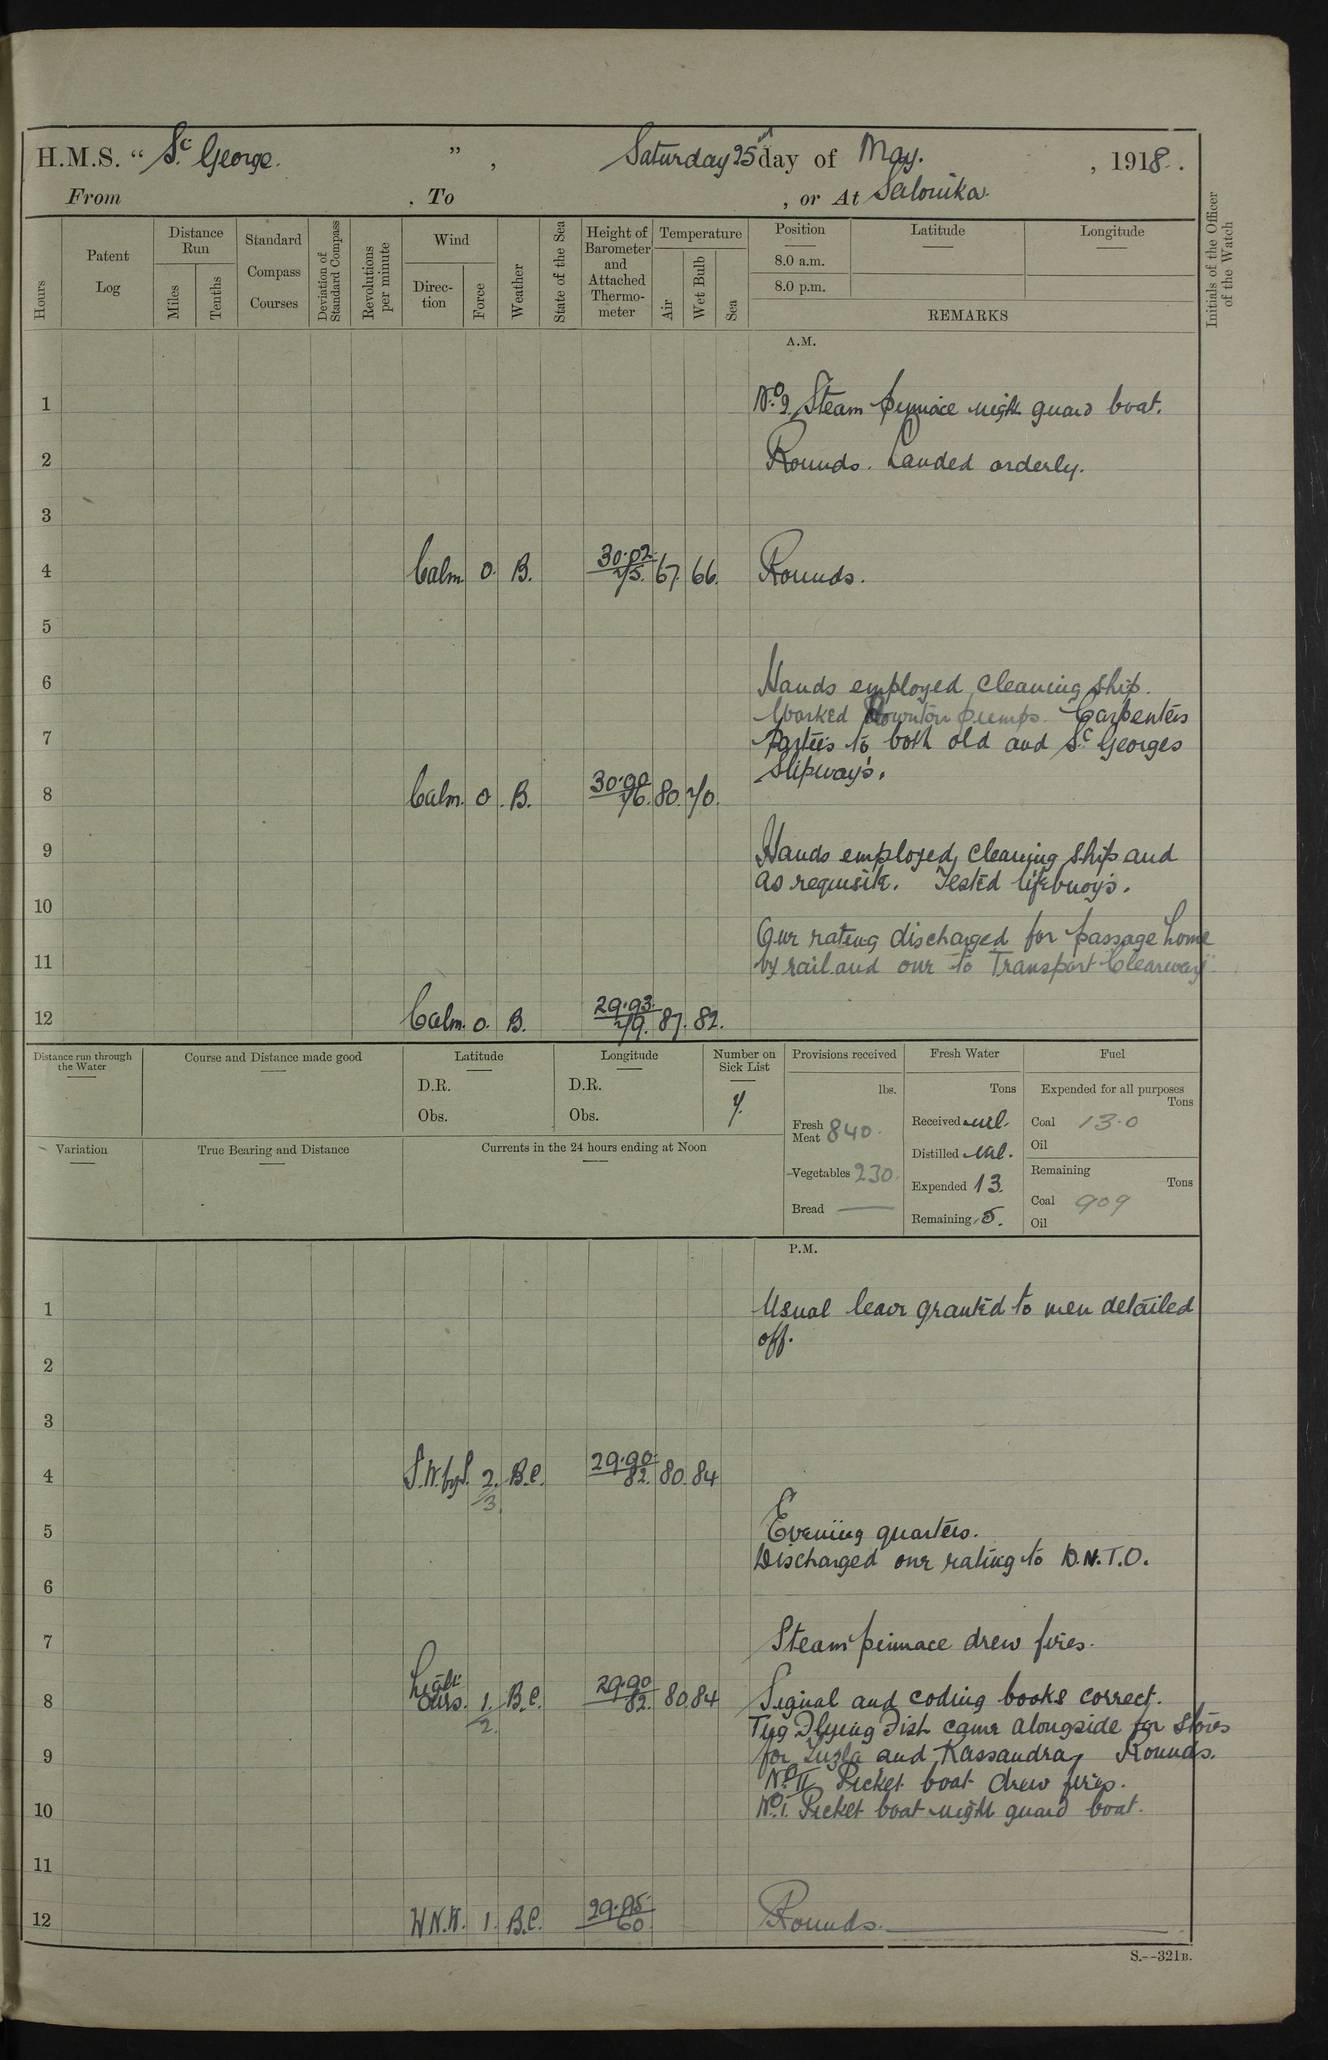 H.M.S. “ St George. ” , Saturday 25th day of May. , 1918.
From . To , or At Salonika.
Hours
Patent Log
Distance Run
Miles
Tenths
Standard Compass Courses
Deviation of Standard Compass
Revolutions per minute
Wind
Direction
Force
Weather
State of the Sea
Height of Barometer and Attached Thermometer
Temperature
Air
Wet Bulb
Sea
Position
8.0 a.m.
8.0 p.m.
Latitude
Longitude
REMARKS
Initials of the Officer of the Watch
A.M.
1 No. 2 Steam pinnace night guard boat.
2 Rounds. Landed orderly.
3
4 Calm. 0. B. 30.02. 75. 67. 66. Rounds.
5
6 Hands employed cleaning ship.
Worked Downton pumps. Carpenters
7 Parties to both old and St Georges
Slipways.
8 Calm. 0. B. 30.00 76. 80. 70.
9 Hands employed cleaning ship and
as requisite. Tested lifebuoys.
10
One rating discharged for passage home
11 by rail and one to Transport "Clearway"
12 Calm. 0. B. 29.93. 79. 87. 82.
Distance run through the Water
Course and Distance made good
Latitude
D.R.
Obs.
Longitude
D.R.
Obs.
Number on Sick List
7.
Provisions received
lbs.
Fresh Meat 840.
Vegetables 230.
Bread ——
Fresh Water
Tons
Received nil.
Distilled nil.
Expended 13.
Remaining 5.
Fuel
Expended for all purposes
Tons
Coal 13.0
Oil
Remaining
Tons
Coal 909
Oil
Variation
True Bearing and Distance
Currents in the 24 hours ending at Noon
P.M.
1 Usual leave granted to men detailed
off.
2
3
4 S.W. by S. 2/3. B.C. 29.90. 82. 80. 84
5 Evening quarters.
Discharged one rating to D.N.T.O.
6
7 Steam pinnace drew fires.
8 Light airs. 1/2. B.C. 29.90 82. 80 84 Signal and coding books correct.
Tug Flying Fish came alongside for stores
9 for Tuzla and Kassandra. Rounds.
No. II Picket boat drew fires.
10 No. 1. Picket boat night guard boat.
11
12 W N.W. 1. B.C. 29.95. 60. Rounds.
S.--321B.